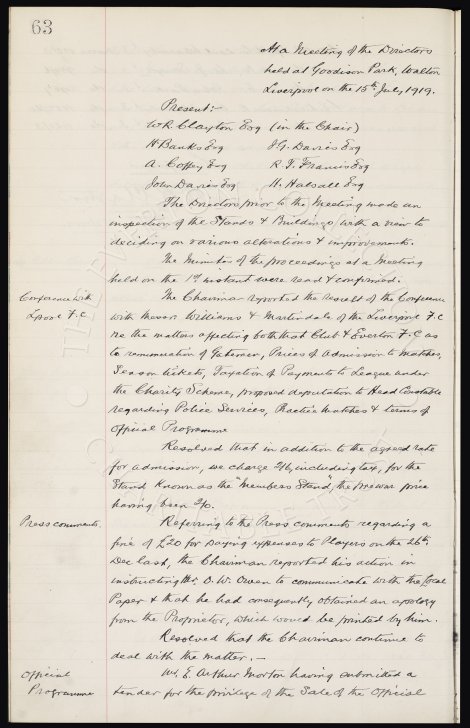 63
At a Meeting of the Directors
held at Goodison Park, Walton
Liverpool on the 15th July, 1919.
Present:-
W R Clayton Esq (in the Chair)
H Banks Esq J.G. Davies Esq
A. Coffey Esq R. T. Francis Esq
John Davies Esq H. Halsall Esq
The Directors prior to the Meeting made an
inspection of the Stands & Buildings with a view to
deciding on various alterations & improvements.
The Minutes of the proceedings at a Meeting
held on the 1st instant were read & confirmed.
Conference with
L'pool F.C.
The Chairman reported the result of the Conference
with Messrs Williams & Martindale of the Liverpool F C
re the matters affecting both that Club & Everton F.C as
to remuneration of Gatemen, Prices of admission to matches,
Season tickets, Taxation of Payments to League under
the Charity Scheme, proposed deputation to Head Constable
regarding Police Services, Practice Matches & terms of
Official Programme
Resolved that in addition to the agreed rate
for admission, we charge 2/6, including tax, for the
Stand known as the "Members Stand", the prewar price
having been 2/0.
Press comments.
Referring to the Press comments regarding a
fine of £20 for paying expenses to Players on the 26th
Dec last, the Chairman reported his action in
instructing Mr. O. W. Owen to communicate with the local
Paper & that he had consequently obtained an apology
from the Proprietor, which would be printed by him.
Resolved that the Chairman continue to
deal with the matter.-
Official
Programme
Mr. E. Arthur Morton having submitted a
tender for the privilege of the Sale of the Official